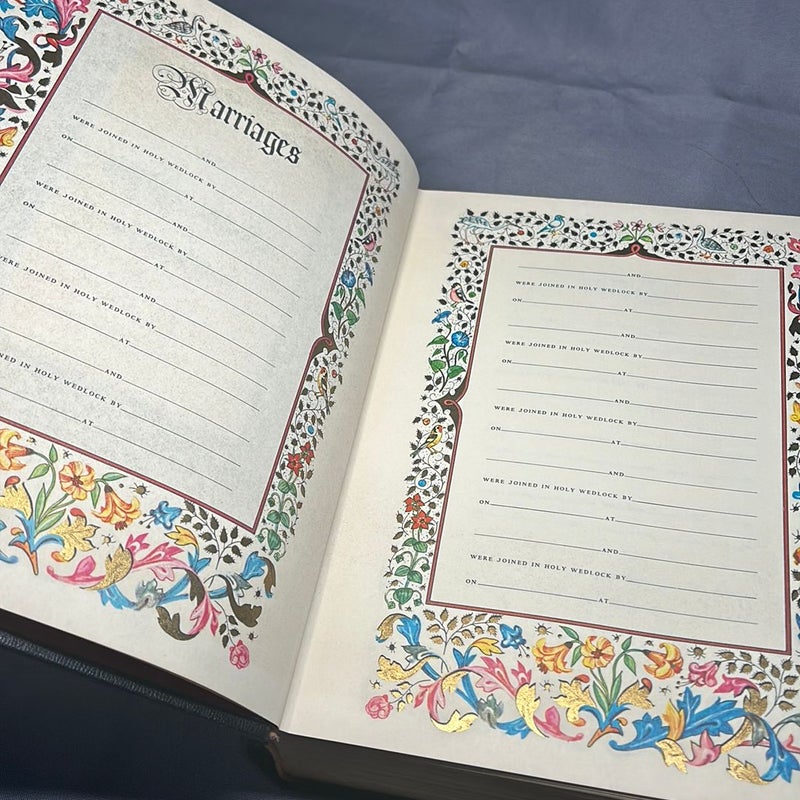 Marriages
AND
WERE JOINED IN HOLY WEDLOCK BY
ON AT
AND
WERE JOINED IN HOLY WEDLOCK BY
ON AT
AND
JOINED IN HOLY WEDLOCK BY
AT
AND
JOINED IN HOLY WEDLOCK BY
AT
AND
WERE JOINED IN HOLY WEDLOCK BY
ON AT
AND
WERE JOINED IN HOLY WEDLOCK BY
ON AT
AND
WERE JOINED IN HOLY WEDLOCK BY
ON AT
AND
WERE JOINED IN HOLY WEDLOCK BY
ON AT
AND
WERE JOINED IN HOLY WEDLOCK BY
ON AT